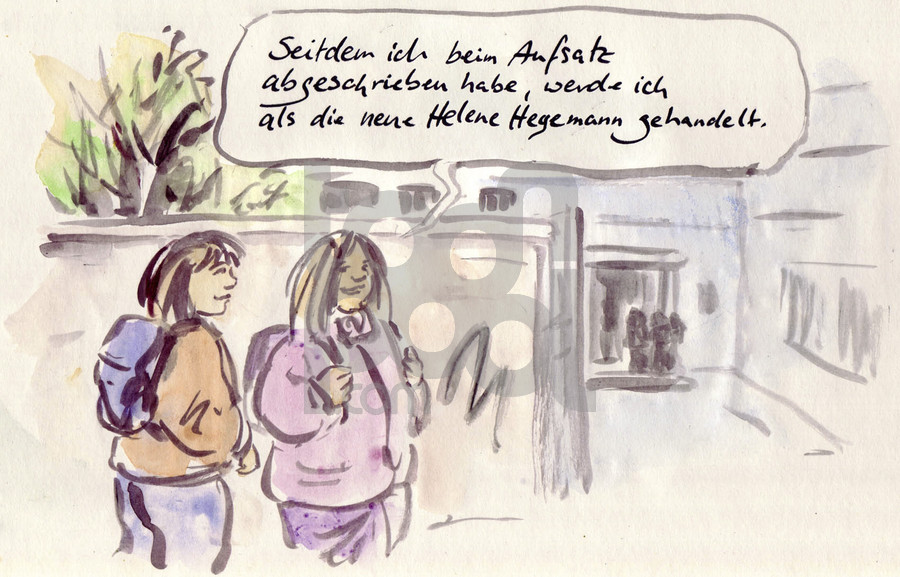 Seitdem ich beim Aufsatz
abgeschrieben habe, werde ich
als die neue Helene Hegemann gehandelt.